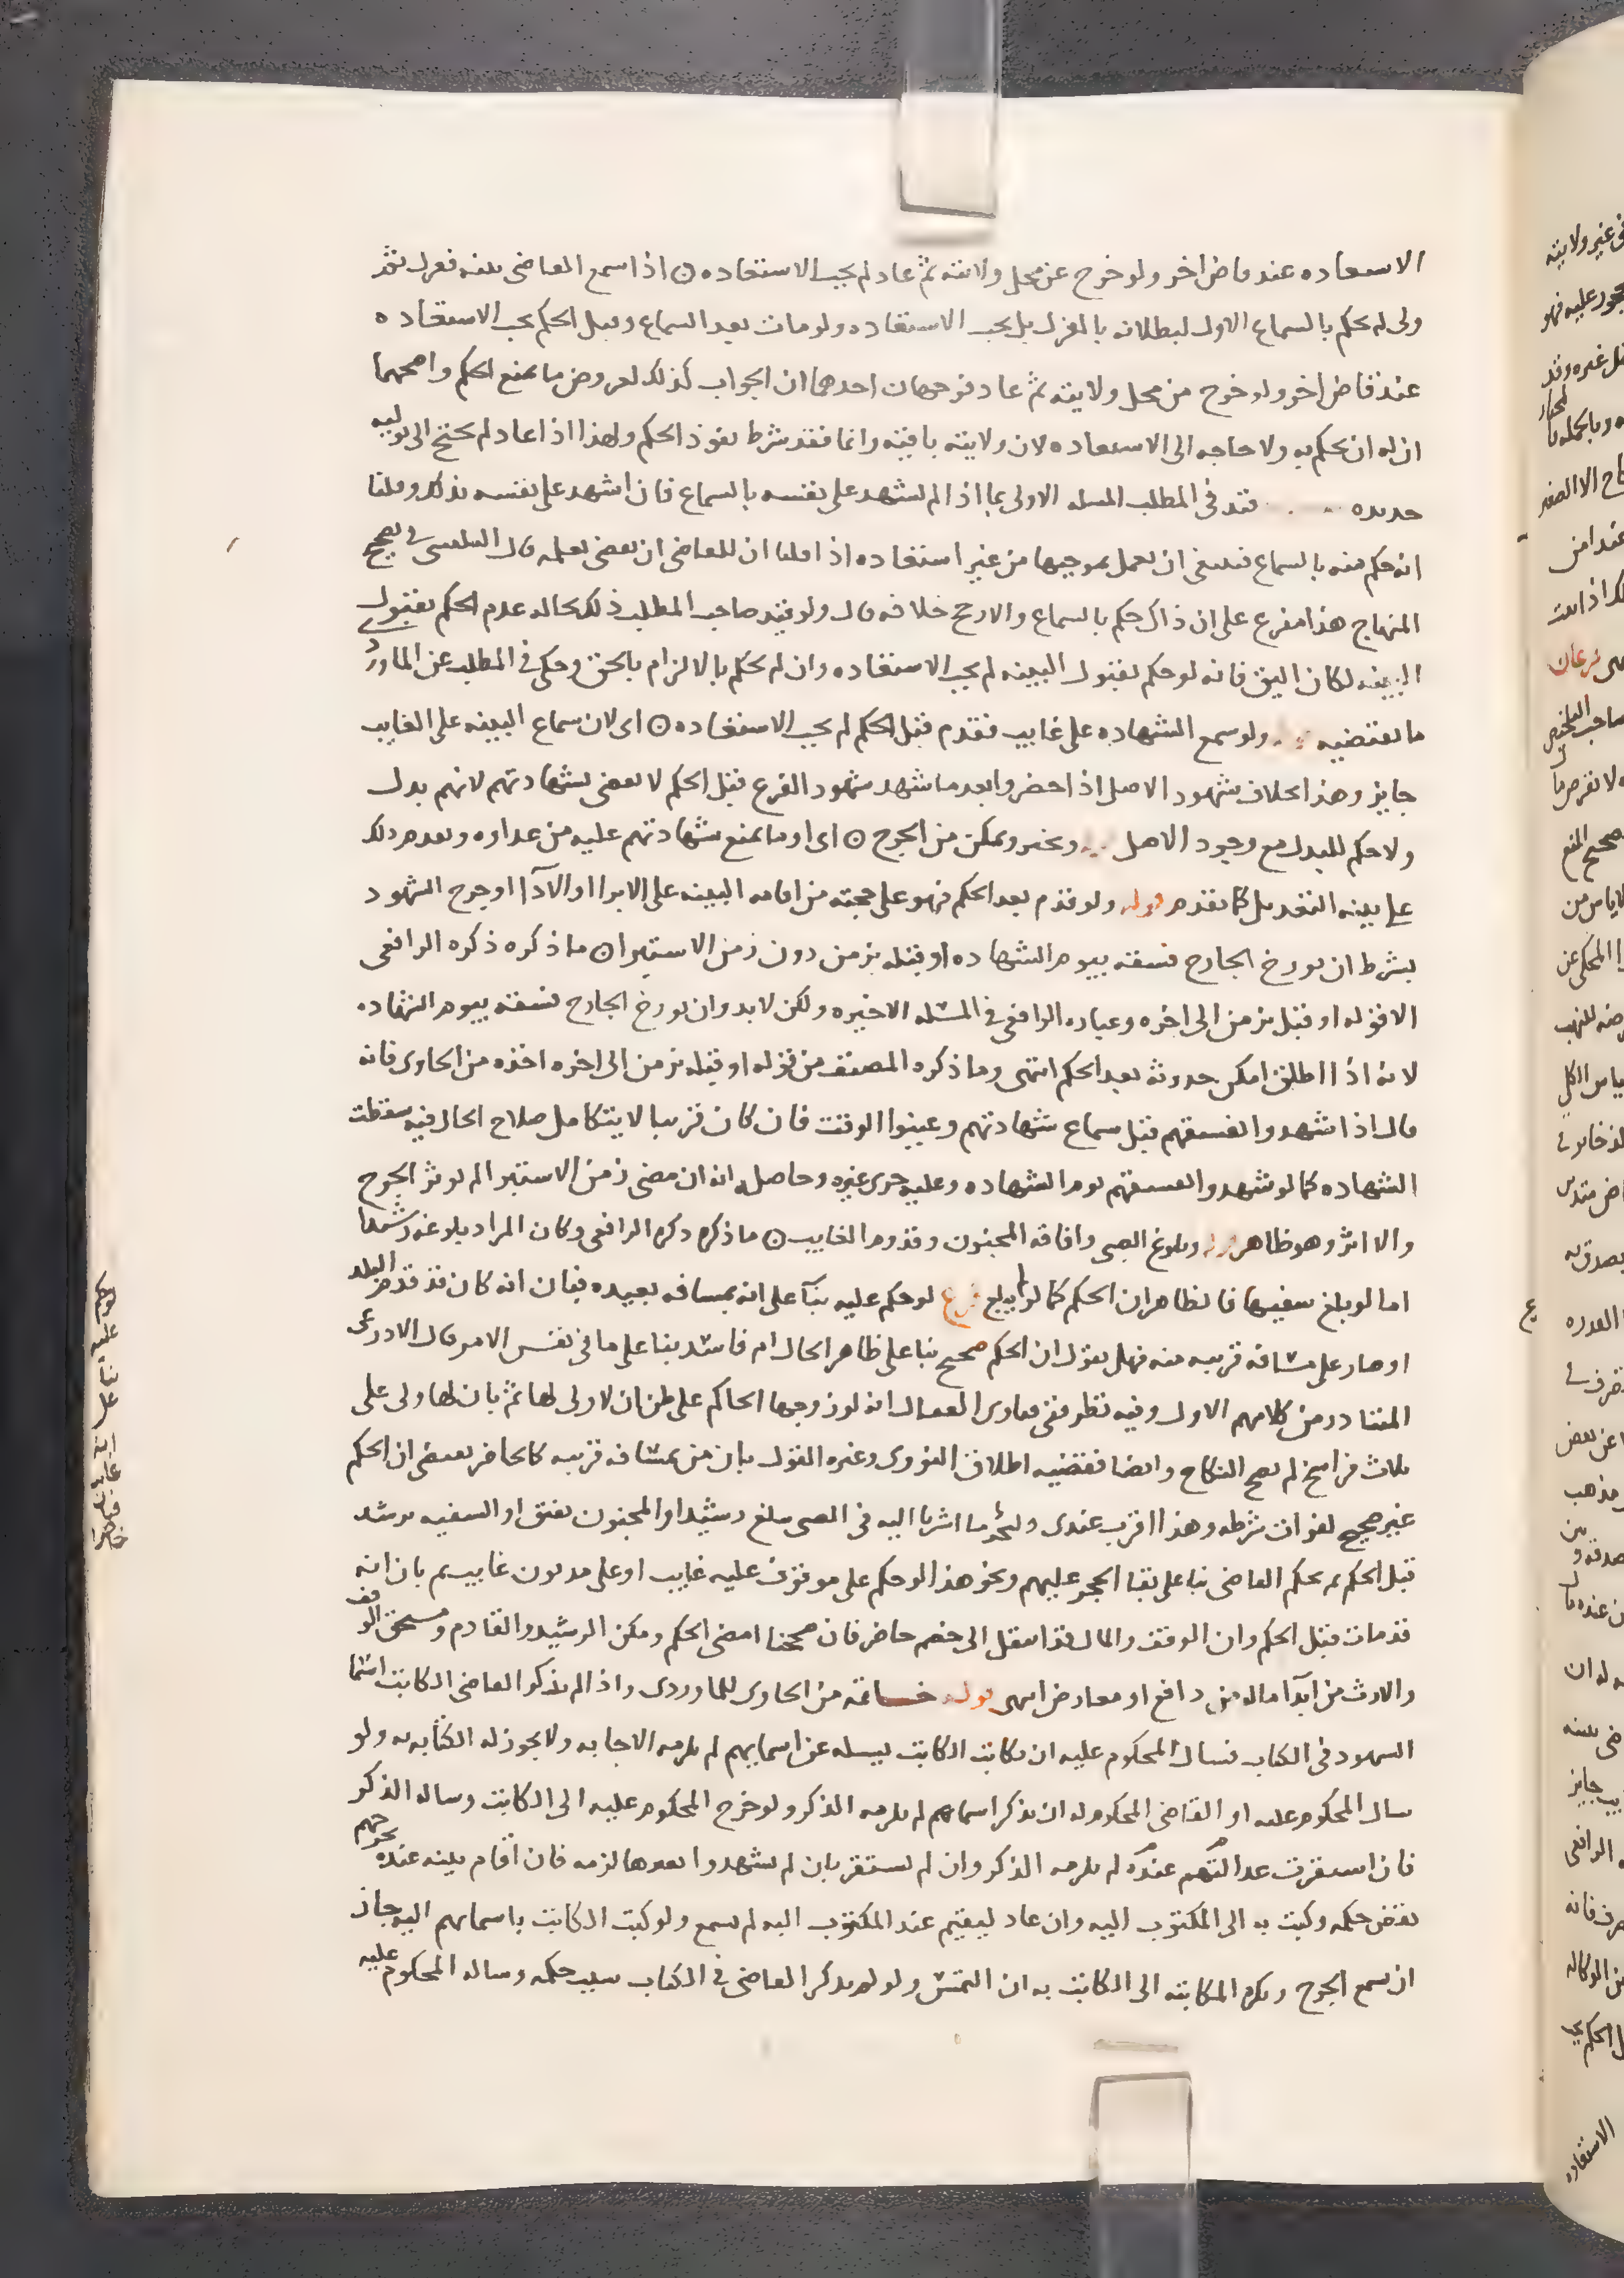 الاستعاده عند قاض اخر ولو خرج عن محل ولايته ثم عاد لم يجب الاستعاده ۞ اذا سمع القاضى بينه فعزل ثم
ولى لم يحكم بالسماع الاول لبطلانه بالعزل بل يجب الاستعاده ولو مات بعد السماع وقبل الحكم يجب الاستعاده
عند قاض اخر ولو خرج من محل ولايته ثم عاد فوجهان احدهما ان الجواب كذلك لعروض ما يمنع الحكم واصحهما
ان له ان يحكم به ولا حاجه الى الاستعاده لان ولايته باقيته وانما فقد شرط نفوذ الحكم ولهذا اذا عاد لم يحتج الى توليه
جديده قيد فى المطلب المسله الاولى بما اذا لم يشهد على نفسه بالسماع فان اشهد على نفسه بذلك وقلنا
انه حكم منه بالسماع فينبغى ان يعمل بموجبها من غير استعاده اذا قلنا ان للقاضى ان يقضى بعلمه قال البلقينى فى تصحيح
المنهاج هذا مفرع على ان ذاك حكم بالسماع والارجح خلافه قال ولو قيد صاحب المطلب ذلك بحاله عدم الحكم بقبول
البينه لكان اليق فانه لو حكم بقبول البينه لم يجب الاستعاده وان لم يحكم بالالزام بالحق وحكى فى المطلب عن الماوردى
ما يقتضيه ولو سمع الشهاده على غايب فقدم قبل الحكم لم يجب الاستعاده ۞ اى لان سماع البينه على الغايب
جايز وهذا بخلاف شهود الاصل اذا حضروا بعد ما شهد شهود الفرع قبل الحكم لا يقضى بشهادتهم لانهم بدل
ولا حكم للبدل مع وجود الاصل ويخبر ويمكن من الجرح ۞ اى او ما يمنع شهادتهم عليه من عداوه وبعدم ذلك
على بينه التعديل كما تقدم قوله ولو قدم بعد الحكم فهو على حجته من اقامه البينه على الابرا او الادآ او جرح الشهود
بشرط ان يورخ الجارح فسقه بيوم الشهاده او قبله بزمن دون زمن الاستبرا ۞ ما ذكره ذكره الرافعى
الا قوله او قبل بزمن الى اخره وعباره الرافعى فى المسله الاخيره ولكن لابد وان يورخ الجارح فسقه بيوم الشهاده
لانه اذا اطلق امكن حدوثه بعد الحكم انتهى وما ذكره المصنف من قوله او قبله بزمن الى اخره اخذه من الحاوى فانه
قال اذا شهدوا بفسقهم قبل سماع شهادتهم وعينوا الوقت فان كان قريبا لا يتكامل صلاح الحال فيه سقطت
الشهاده كما لو شهدوا بفسقهم يوم الشهاده وعليه جرى غيره وحاصله انه ان مضى زمن الاستبرا لم يوثر الجرح
والا اثر وهو ظاهر قوله وبلوغ الصبى وافاقه المجنون وقدوم الغايب ۞ ما ذكره ذكره الرافعى وكان المراد بلوغه رشيدا
اما لو بلغ سفيها فالظاهر ان الحكم كما لو لم يبلغ فرع لو حكم عليه بنآ على انه بمسافه بعيده فبان انه كان قد قدم البلد
او صار على مسافه قريبه منه فهل يقول ان الحكم صحيح بنا على ظاهر الحال ام فاسد بنا على ما فى نفس الامر قال الاذرعى
المتبادر من كلامهم الاول وفيه نظر ففى فتاوى القفال انه لو زوجها الحاكم على ظن ان لا ولى لها ثم بان لها ولى على
ثلاث فراسخ لم يصح النكاح وايضا فقضيه اطلاق النووى وغيره القول بان من بمسافه قريبه كالحاضر يقتضى ان الحكم
غير صحيح لفوات شرطه وهذا اقرب عندى ولنحو ما اشرنا اليه فى الصبى يبلغ رشيدا والمجنون يفيق او السفيه يرشد
قبل الحكم ثم يحكم القاضى بنا على بقا الحجر عليهم ونحو هذا لو حكم على موقوف عليه غايب او على مديون غايب ثم بان انه
قد مات قبل الحكم وان الوقف والمال قد انتقل الى خصم حاضر فان صححنا امضى الحكم ومكن الرشيد والقادم ومستحق الوقف
والارث من ابدآ ماله من دافع او معارض انتهى قوله خساتمه من الحاوى للماوردى واذا لم يذكر القاضى الكاتب اسما
الشهود فى الكتاب فسال المحكوم عليه ان يكاتب الكاتب ليسله عن اسمايهم لم يلزمه الاجابه ولا يجوز له الكتابه به ولو
سال المحكوم عليه او القاضى المحكوم له ان يذكر اسماهم لم يلزمه الذكر ولو خرج المحكوم عليه الى الكاتب وساله الذكر
فان استقرت عدالتهم عنده لم يلزمه الذكر وان لم يستقر بان لم يشهدوا بعدها لزمه فان اقام بينه عنده بجرحهم
نقض حكمه وكتب به الى المكتوب اليه وان عاد ليقيم عند المكتوب اليه لم يسمع ولو كتب الكاتب باسمايهم اليه جاز
ان يسمع الجرح ويكره المكاتبه الى الكاتب به ان التمس ولو لم يذكر القاضى فى الكتاب سبب حكمه وساله المحكوم عليه
لو حكم
عليه
بنا
على
انه
غايب
فبان
حاضرا